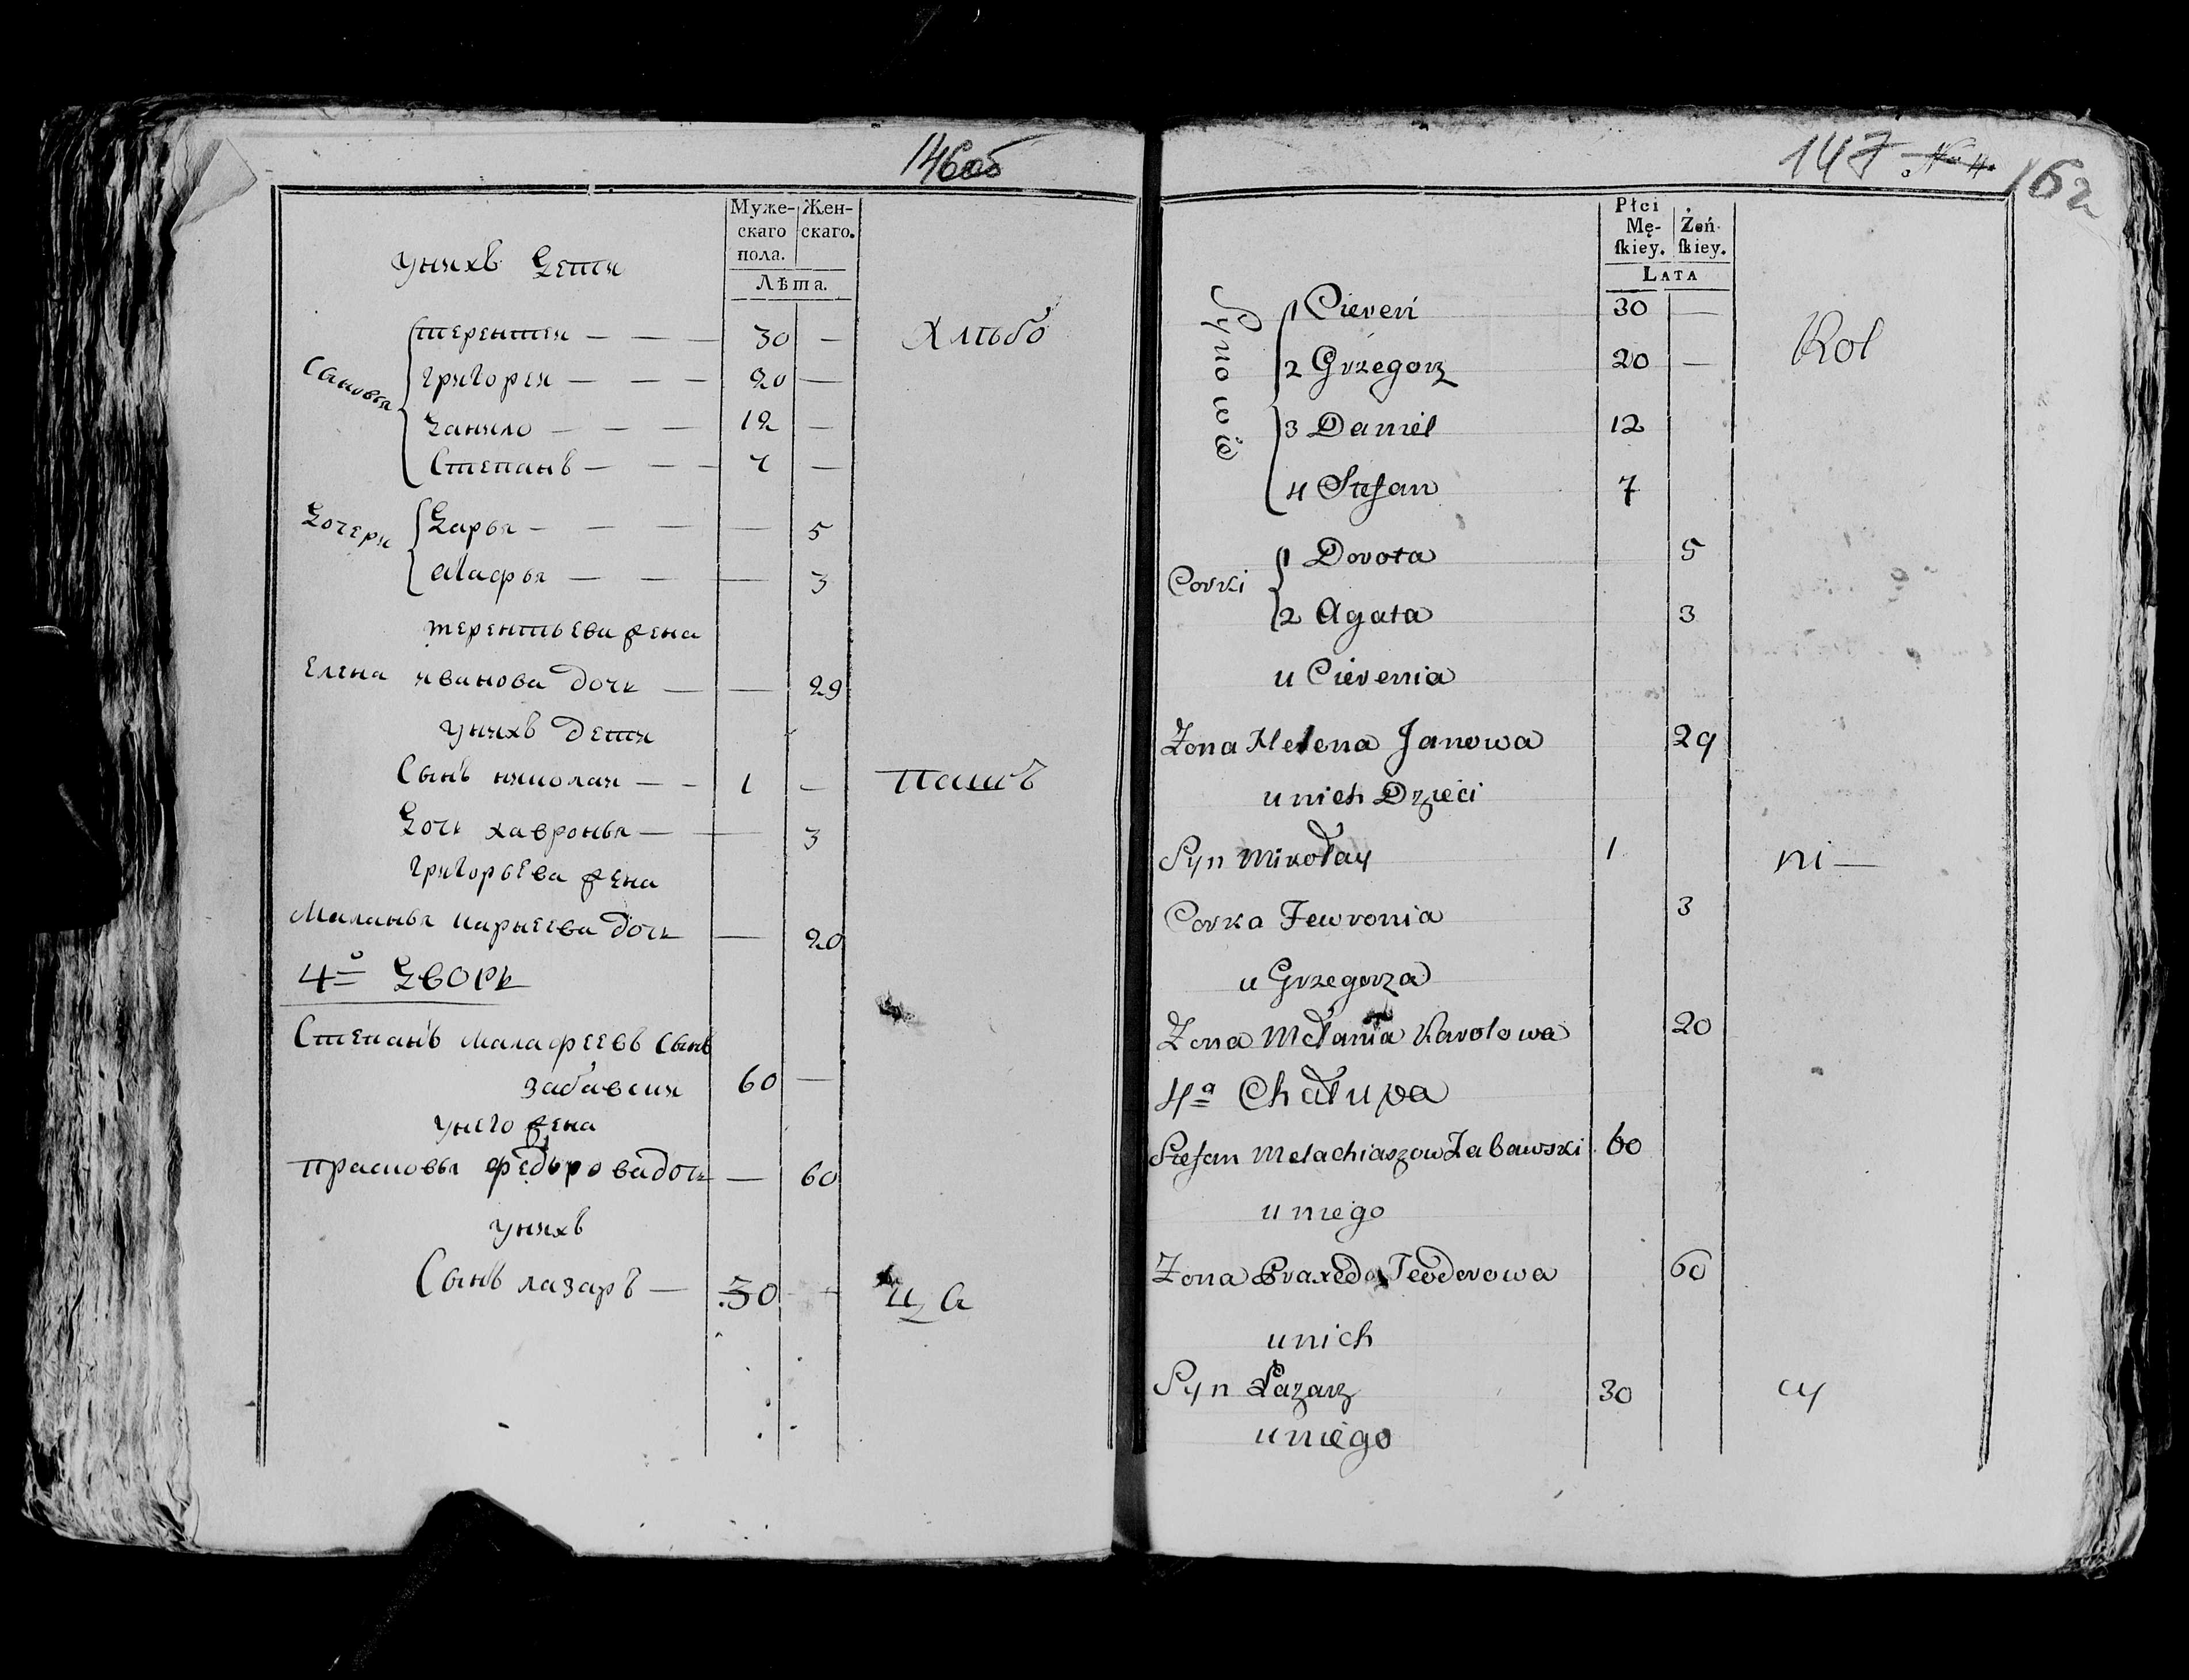 146об
Муже-
скаго
пола.
Жен-
скаго.
Лѣта.
унихъ Дети
Сыновья
терентеи — — — 30 —
григореи — — — 20 —
Данило — — — 12 —
Степанъ — — — 7 —
Дочери
Дарья — — — — 5
— — — 3
терентьева жена
Елена иванова дочь — — 29
унихъ дети
Сынъ николаи — — 1 —
Дочь хавронья — — 3
григорьева жена
Маланья дочь — 20
4й Дворъ
Степанъ Малафеевъ Сынъ
забавски 60 —
унего жена
Прасковья федорова дочь — 60
унихъ
Сынъ лазаръ — 30 —
Хлѣбо
пашъ
ца
147
162
Płci
Mę-
skiey.
Żeń-
skiey.
Lata
Synowie
1 Cieren 30 —
2 Grzegorz 20 —
3 Daniel 12
4 Stefan 7
Corki
1 Dorota 5
2 Agata 3
u Cierenia
Zona Helena Janowa 29
u nich Dzieci
Syn Mikołay 1
Corka Fewronia 3
u Grzegorza
Zona Mełania Karolowa 20
4a Chałupa
Stefan Melachiaszow Zabawski 60
u niego
Zona Praxeda Teodorowa 60
u nich
Syn Łazarz 30
u niego
Rol
ni —
cy